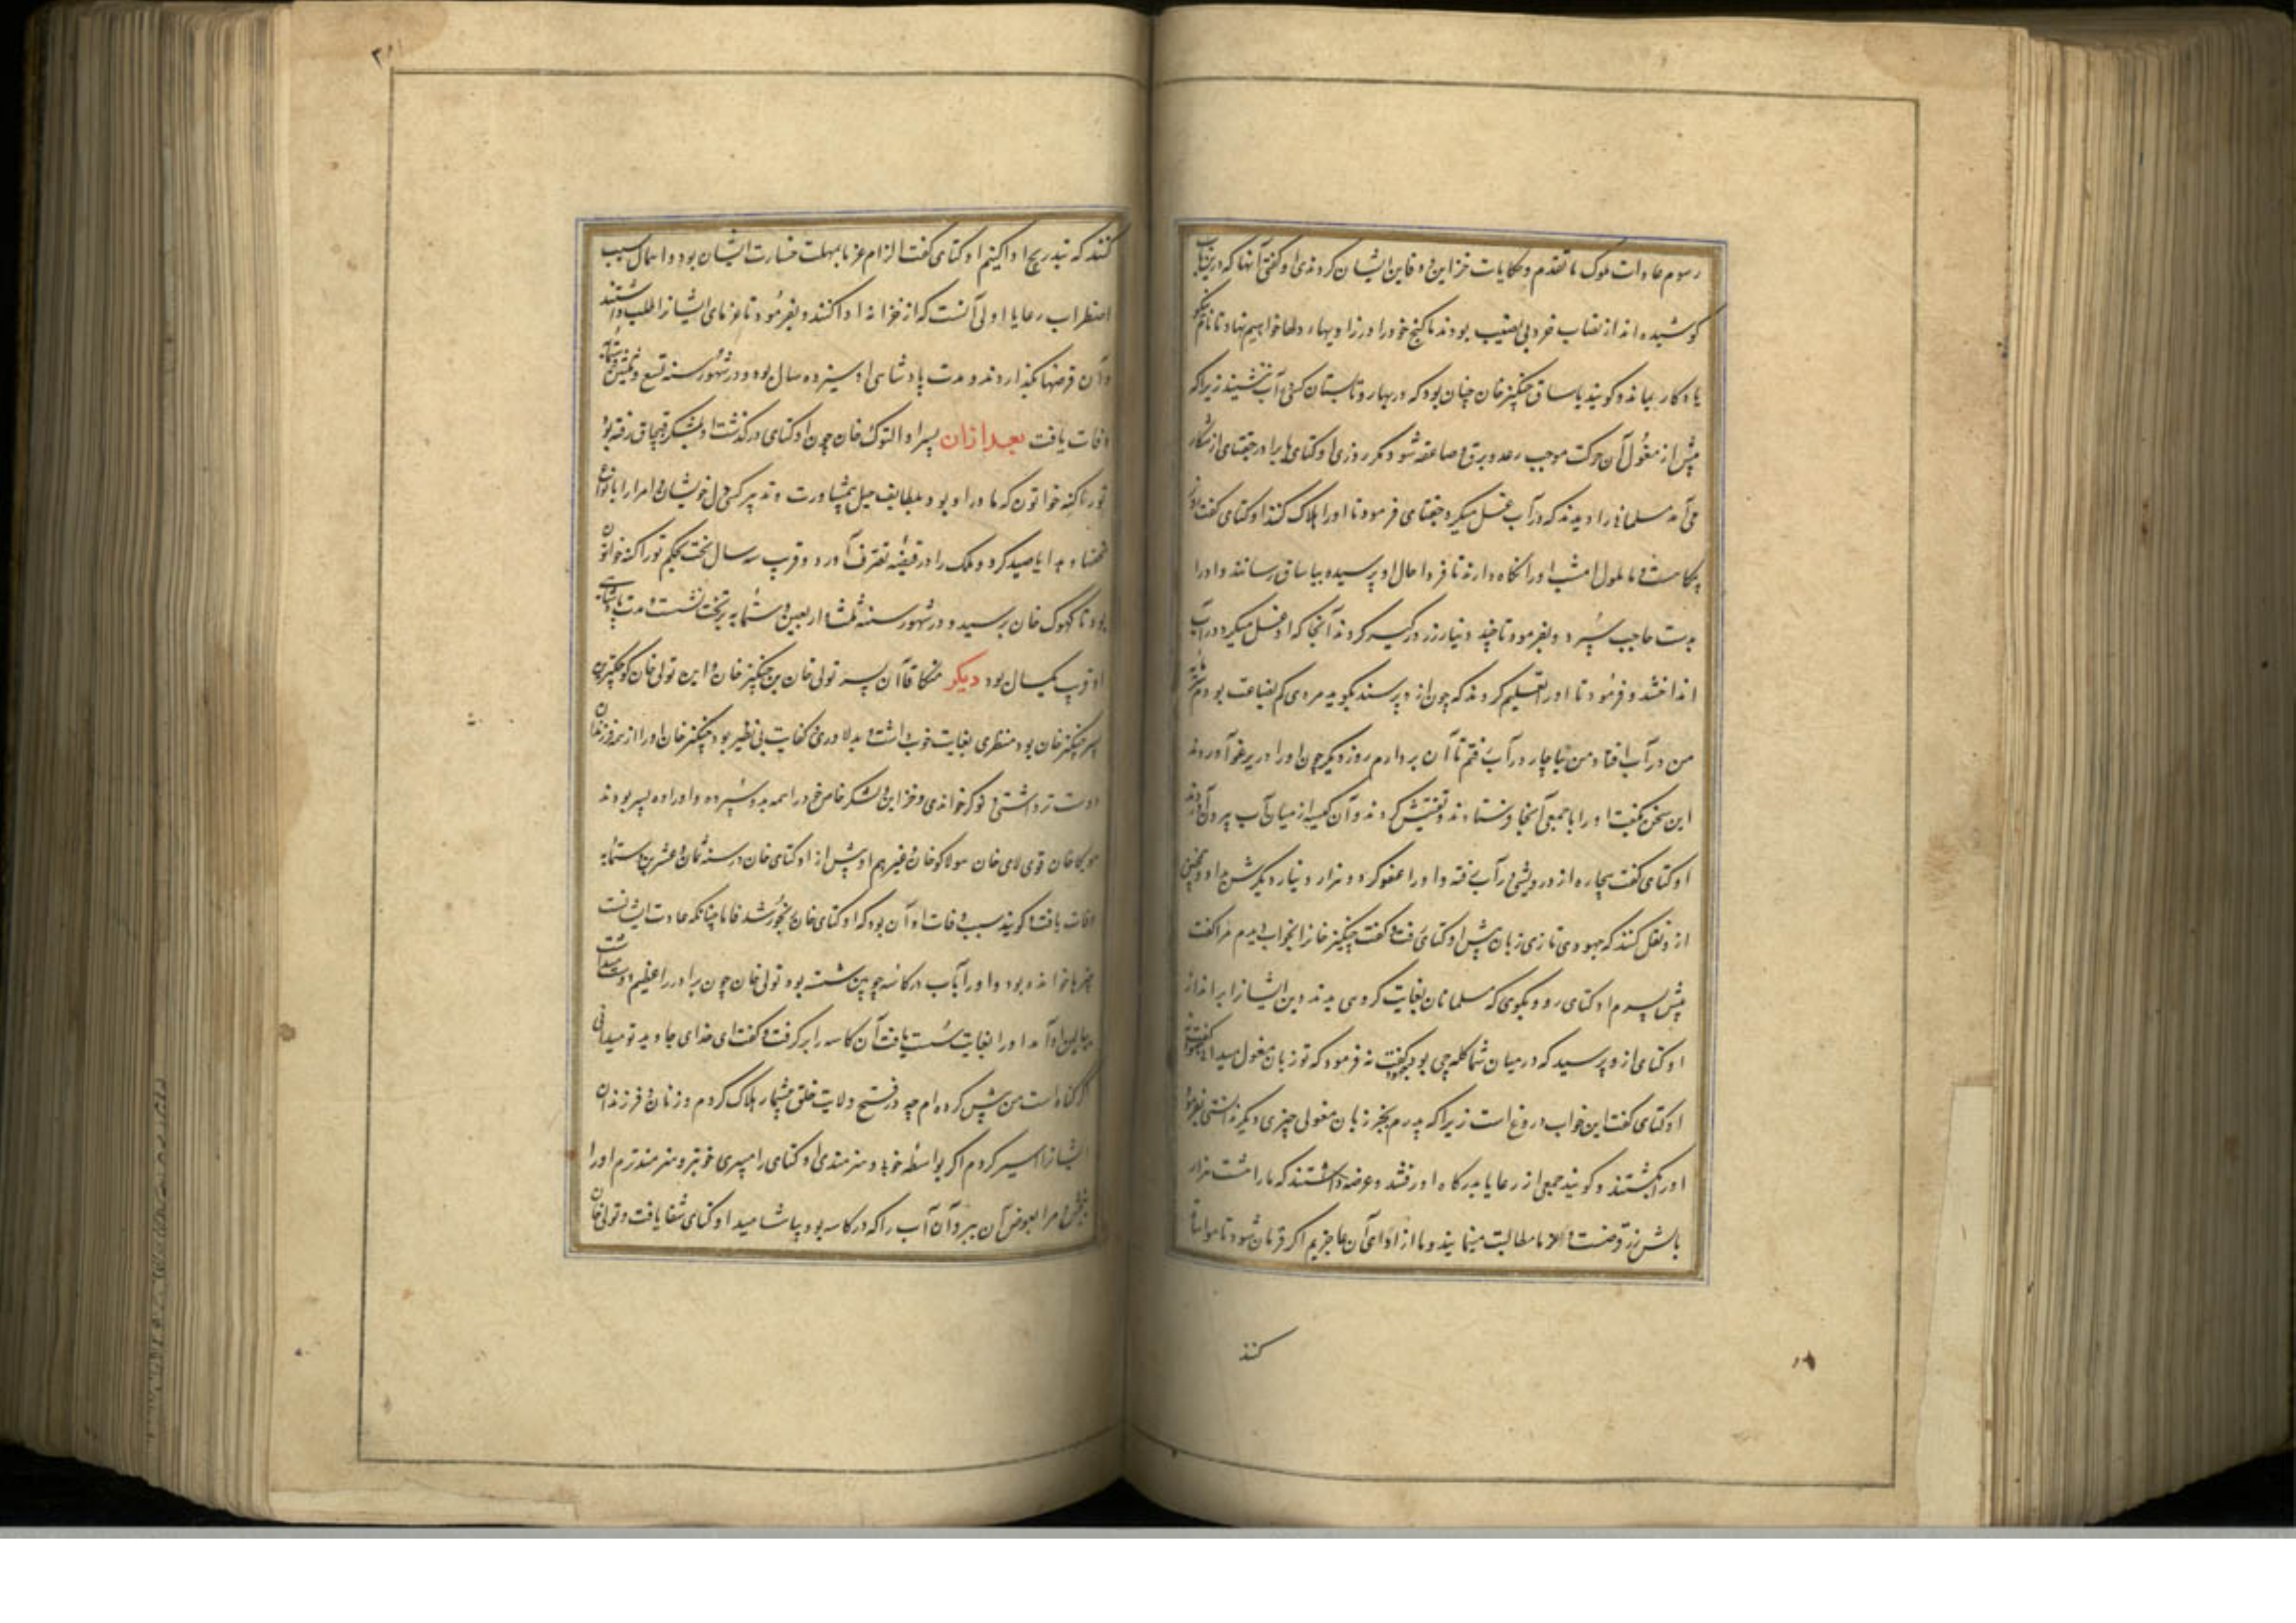 رسوم عادات ملوک ما تقدم و حکایات خزاین و دفاین ایشان کردندی او گفتی آنها که درین باب
کوشیده‌اند از نصاب خرد بی نصیب بودند ما گنج خود را در زوایهاء دلها خواهیم نهاد تا نام نیکو
یادکار بماند و کویند یاساق چنگیزخان چنان بود که در بهار و تابستان کسی در آب ننشیند زیرا که
پیش از مغول آن حرکت موجب رعد و برق و صاعقه شود مکر روزی اوکتای با برادر جغتای از شکار
می آمد مسلمانی را دیدند که در آب غسل میکرد جغتای فرمود تا او را هلاک کنند اوکتای گفت امروز
بیکاهست و ما ملول امشب او را نکاه دارند تا فردا حال او پرسیده بیاساق رسانند و او را
بدست حاجب سپرد و بفرمود تا چند دینار زر در کیسه کردند آنجا که او غسل میکرد در آب
انداختند و فرمود تا او را تعلیم کردند که چون از او پرسند بگوید مردی کم بضاعت بودم سرمایه
من در آب افتاد من بناچار در آب رفتم تا آن بردارم روز دیکر چون او را در یرغو آوردند
این سخن بگفت او را با جمعی آنجا فرستادند و تفتیش کردند و آن کیسه از میان آب بیرون آوردند
اوکتای گفت بیچاره از درویشی در آب رفته و او را عفو کرد و هزار دینار دیکرش داد و همچنین
از او نقل کنند که جهودی تازی زبان پیش اوکتای رفت و گفت چنگیزخان را بخواب دیدم مرا گفت
پیش پسرم اوکتای رو و بگوی که مسلمانان بغایت کروهی بدند دین ایشان را برانداز
اوکتای از او پرسید که در میان شما کلمه‌چی بود گفت نه فرمود که تو زبان مغول میدانی گفت نه
اوکتای گفت این خواب دروغ است زیرا که پدرم بجز زبان مغولی چیزی دیکر ندانستی بفرمود
او را بکشتند و کویند جمعی از رعایا بدرکاه او رفتند و عرضه داشتند که ما را هشت هزار
بالش زر قرضست و غرما مطالبت مینمایند و ما از ادای آن عاجزیم اکر فرمان شود تا مواسا
کنند
کنند که بتدریج ادا کنیم اوکتای گفت الزام غرما بمهلت خسارت ایشان بود و اهمال سبب
اضطراب رعایا اولی آنست که از خزانه ادا کنند و بفرمود تا غرمای ایشان را طلب داشتند
و آن قرضها بگذاردند و مدت پادشاهی او سیزده سال بود و در شهور سنه تسع و ثلثین و ستمایه
وفات یافت بعد از ان پسر او التوک خان چون اوکتای درگذشت او بلشکر قبچاق رفته بود
توراکنه خواتون که مادر او بود بلطایف حیل بی مشاورت و تدبیر کسی دل خویشان و امرا را بانواع
تحفها و هدایا صید کرد و ملک را در قبضه تصرف آورد و قرب سه سال تخت بحکم توراکنه خواتون
بود تا کیوک خان برسید و در شهور سنه ثلث و اربعین و ستمایه بر تخت نشست و مدت پادشاهی
او قرب یکسال بود دیکر منکا قاآن پسر تولی خان بن چنگیزخان و این تولی خان کوچکترین
پسر چنگیزخان بود منظری بغایت خوب داشت و بدلاوری و کفایت بی نظیر بود چنگیزخان او را از همه فرزندان
دوست تر داشتی و نوکر خواندی و خزاین و لشکر خاص خود را همه بدو سپرده و او را ده پسر بودند
مونکا خان قوبی لای خان هولاکو خان و غیرهم او پیش از اوکتای خان در سنه ثمان و عشرین و ستمایه
وفات یافت و کویند سبب وفات او آن بود که اوکتای خان رنجور شد قامان چنانکه عادت ایشانست
چیزها خوانده بود و او را بآب در کاسه چوبین شسته بود تولی خان چون برادر را عظیم دوست داشت
ببالین او آمد او را بغایت سست یافت آن کاسه را برگرفت و گفت ای خدای جاوید تو میدانی
اکر کناهست من بیش کرده‌ام چه در فتح ولایت خلق بیشمار هلاک کردم و زنان و فرزندان
ایشان را اسیر کردم اکر بواسطه خوبی و هنرمندی اوکتای را میبری من خوبتر و هنرمندترم او را
ببخش و مرا بعوض آن ببر و آن آب را که در کاسه بود بیاشامید اوکتای شفا یافت و تولی خان